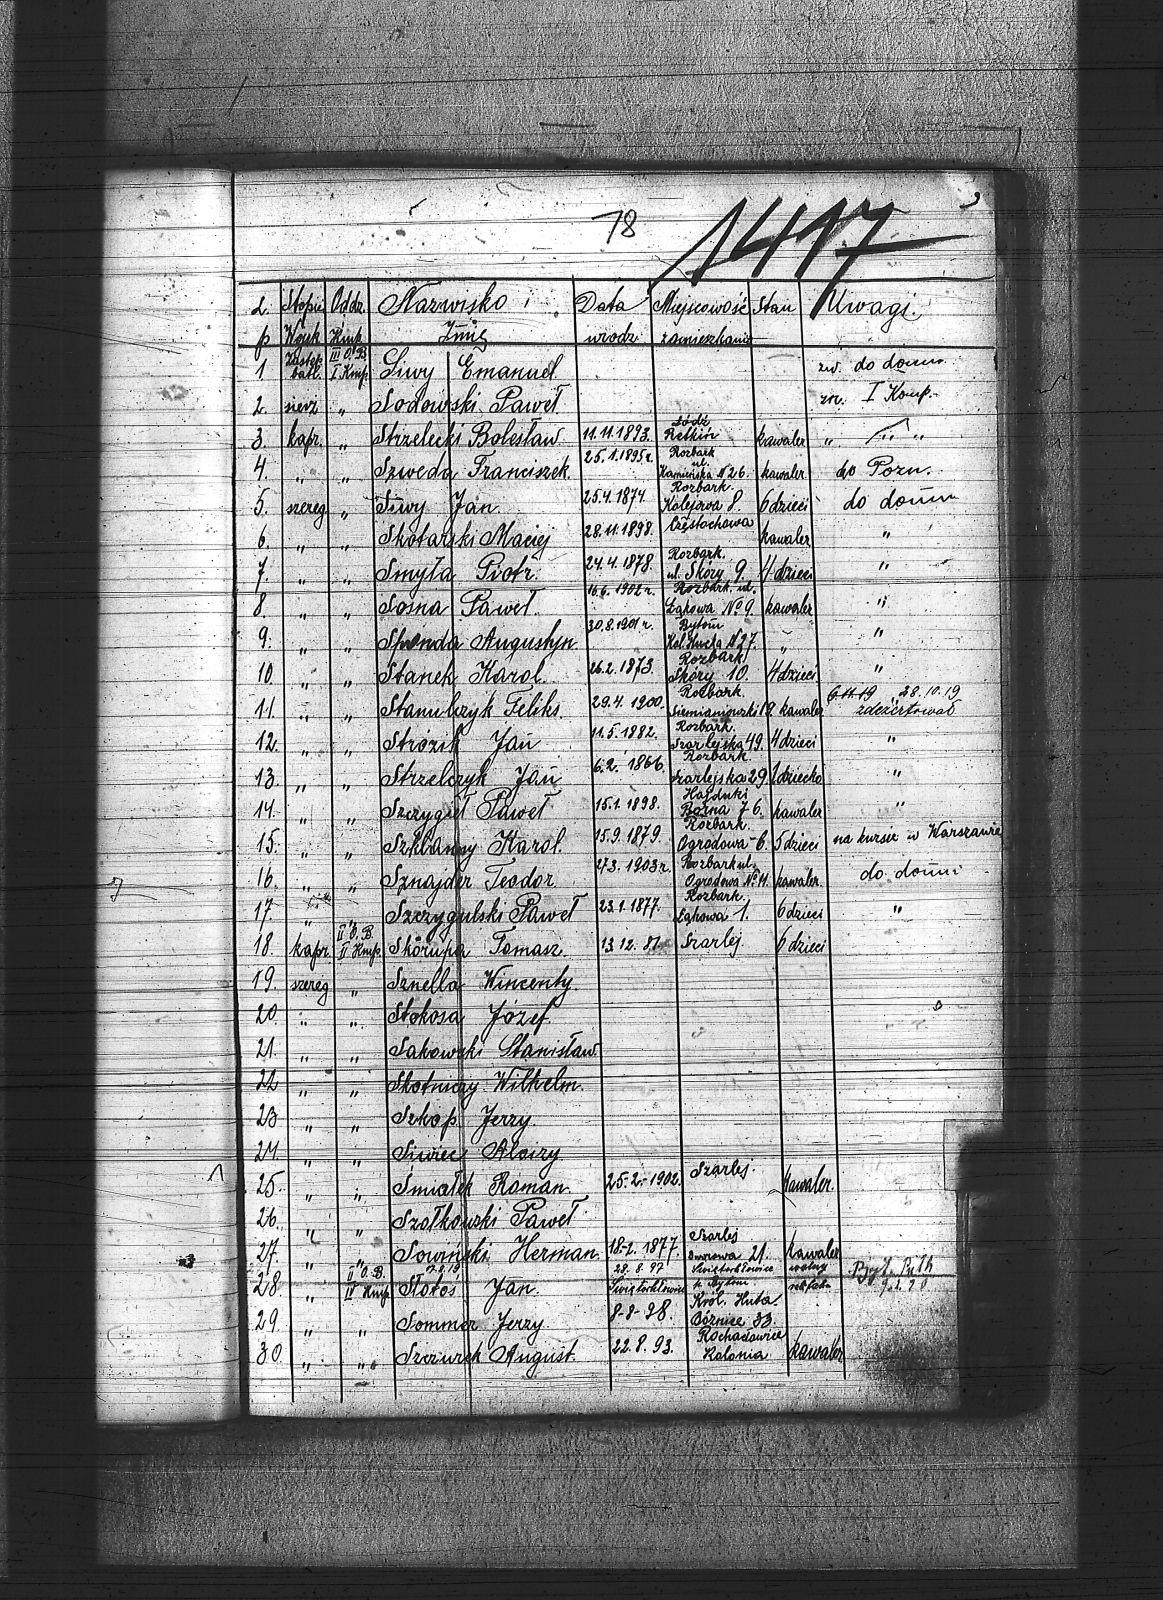 18
1417
L. Stopień Oddz. Nazwisko i Data Miejscowość Stan Uwagi.
p Wojsk Kmp. Imię urodz. zamieszkania
1 Zastęp. batl. III O.B. I Kmp. Siwy Emanuel zw. do domu
2. sierż „ Sodowski Paweł zw. I Komp.
3. kapr. „ Strzelecki Bolesław 11.11.1893. Łódź Retkin kawaler „ „ „
4. „ „ Szweda Franciszek. 25.1.1895r. Rozbark ul. Kamieńska N 26. kawaler do Pozn.
5. szereg „ Siwy Jan 25.4.1874 Rozbark. Kolejowa 8. 6 dzieci do domu
6. „ „ Skotarski Maciej 28.11.1898. Częstochowa kawaler „
7. „ „ Smyła Piotr 24.4.1878. Rozbark. ul. Skóry 9. 4 dzieci „
8. „ „ Sosna Paweł 16.6.1902 r. Rozbark ul. Łąkowa No 9. kawaler „
9. „ „ Augustyn 30.8.1901 r. Bytom N 27. „ „
10 „ „ Stanek Karol 26.2.1873. Rozbark. Skóry 10. 4 dzieci „
11. „ „ Stanulczyk Feliks. 29.4.1900. Rozbark. kawaler 6.11.19 28.10.19 zdezertował
12. „ „ Stróżik Jan 11.5.1882. Rozbark. Szarlejska 49. 4 dzieci „
13. „ „ Strzelczyk Jan 6.2.1866. Rozbark. Szarlejska 29. 1 dziecko „
14. „ „ Szczygieł Paweł 15.1.1898. Hajduki kawaler „
15. „ „ Szklanny Karol. 15.9.1879. Rozbark. Ogrodowa 6. 5 dzieci na kursie w Warszawie
16. „ „ Sznajder Teodor 27.3.1903 r. Rozbark ul. Ogrodowa No 11. kawaler do domu
17. „ „ Szczygulski Paweł 23.1.1877. Rozbark. Łąkowa 1. 6 dzieci „
18. kapr. II O.B. II Kmp. Skórupa Tomasz. 13.12.81. Szarlej. 6 dzieci
19. szereg „ Sznella Wincenty.
20. „ „ Stokosa Józef.
21. „ „ Sakowski Stanisław.
22 „ „ Skotniczy Wilhelm.
23 „ „ Szkop Jerzy.
24. „ „ Siwiec Alojzy
25. „ „ Śmiałek Roman. 25.2.1902. Szarlej. kawaler.
26. „ „ Szołkowski Paweł
27. „ „ Sowiński Herman 18.2.1877. Szarlej Dworowa 21. kawaler
28. „ II O.B. IV Kmp. Stotos Jan. 28.8.97 Świętochłowice Świętochłowice Byt. Pułk 9.2.20
29. „ „ Sommer Jerzy 8-8-98. Król. Huta 33.
30. „ „ Szczurek August. 22.8.93. Kochłowice Kolonia kawaler